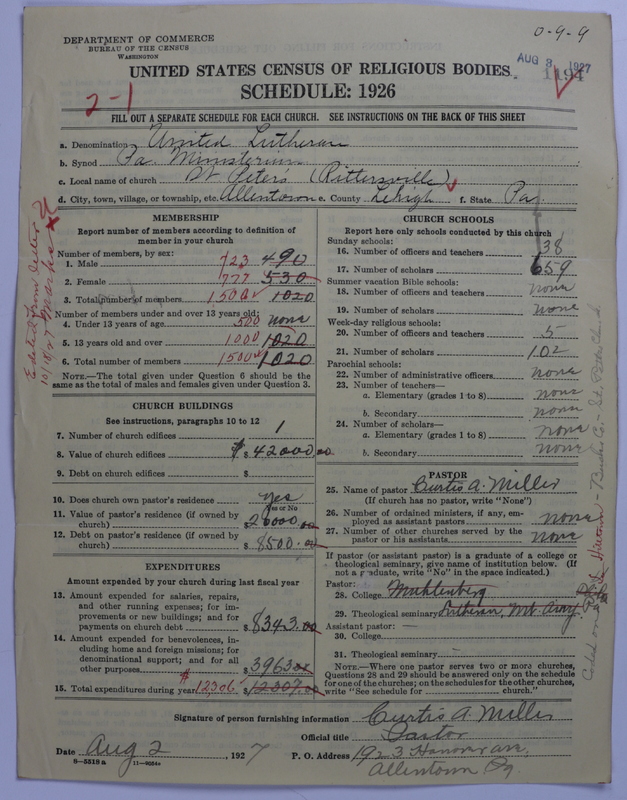 DEPARTMENT OF COMMERCE
BUREAU OF THE CENSUS
WASHINGTON
0-9-9
AUG 3 1927
1194
UNITED STATES CENSUS OF RELIGIOUS BODIES
SCHEDULE: 1926
2-1
FILL OUT A SEPARATE SCHEDULE FOR EACH CHURCH. SEE INSTRUCTIONS ON THE BACK OF THIS SHEET
a. Denomination United Lutheran
b. Synod Pa. Ministerium
c. Local name of church St Peter's (Rittersville)
d. City, town, village, or township, etc. Allentown e. County Lehigh f. State Pa.
MEMBERSHIP
Report number of members according to definition of member in your church
Number of members, by sex:
1. Male 723 490
2. Female 777 530
3. Total number of members 1500 1020
Number of members under and over 13 years old:
4. Under 13 years of age 500 none
5. 13 years old and over 1000 1020
6. Total number of members 1500 1020
NOTE.—The total given under Question 6 should be the
same as the total of males and females given under Question 3.
CHURCH BUILDINGS
See instructions, paragraphs 10 to 12
7. Number of church edifices 1
8. Value of church edifices $ 42000.00
9. Debt on church edifices $
10. Does church own pastor's residence yes
Yes or No
11. Value of pastor's residence (if owned by
church) $ 20000.00
12. Debt on pastor's residence (if owned by
church) $ 8500.00
EXPENDITURES
Amount expended by your church during last fiscal year
13. Amount expended for salaries, repairs,
and other running expenses; for im-
provements or new buildings; and for
payments on church debt $ 8343.00
14. Amount expended for benevolences, in-
cluding home and foreign missions; for
denominational support; and for all
other purposes $ 3963.00
15. Total expenditures during year $12,306. $ 12307.00
CHURCH SCHOOLS
Report here only schools conducted by this church
Sunday schools:
16. Number of officers and teachers 38
17. Number of scholars 659
Summer vacation Bible schools:
18. Number of officers and teachers none
19. Number of scholars none
Week-day religious schools:
20. Number of officers and teachers 5
21. Number of scholars 102
Parochial schools:
22. Number of administrative officers none
23. Number of teachers—
a. Elementary (grades 1 to 8) none
b. Secondary none
24. Number of scholars—
a. Elementary (grades 1 to 8) none
b. Secondary none
PASTOR
25. Name of pastor Curtis A. Miller
(If church has no pastor, write "None")
26. Number of ordained ministers, if any, em-
ployed as assistant pastors none
27. Number of other churches served by the
pastor or his assistants none
If pastor (or assistant pastor) is a graduate of a college or
theological seminary, give name of institution below. (If
not a graduate, write "No" in the space indicated.)
Pastor:
28. College Muhlenberg
29. Theological seminary Lutheran, Mt. Airy
Assistant pastor: —
30. College
31. Theological seminary —
NOTE.—Where one pastor serves two or more churches,
Questions 28 and 29 should be answered only on the schedule
for one of the churches; on the schedules for the other churches,
write "See schedule for church."
Signature of person furnishing information Curtis A. Miller
Official title Pastor
Date Aug 2, 1927 P. O. Address 1923 Hanover ave,
Allentown Pa.
8—5518 a
Edited from letter
10/18/27